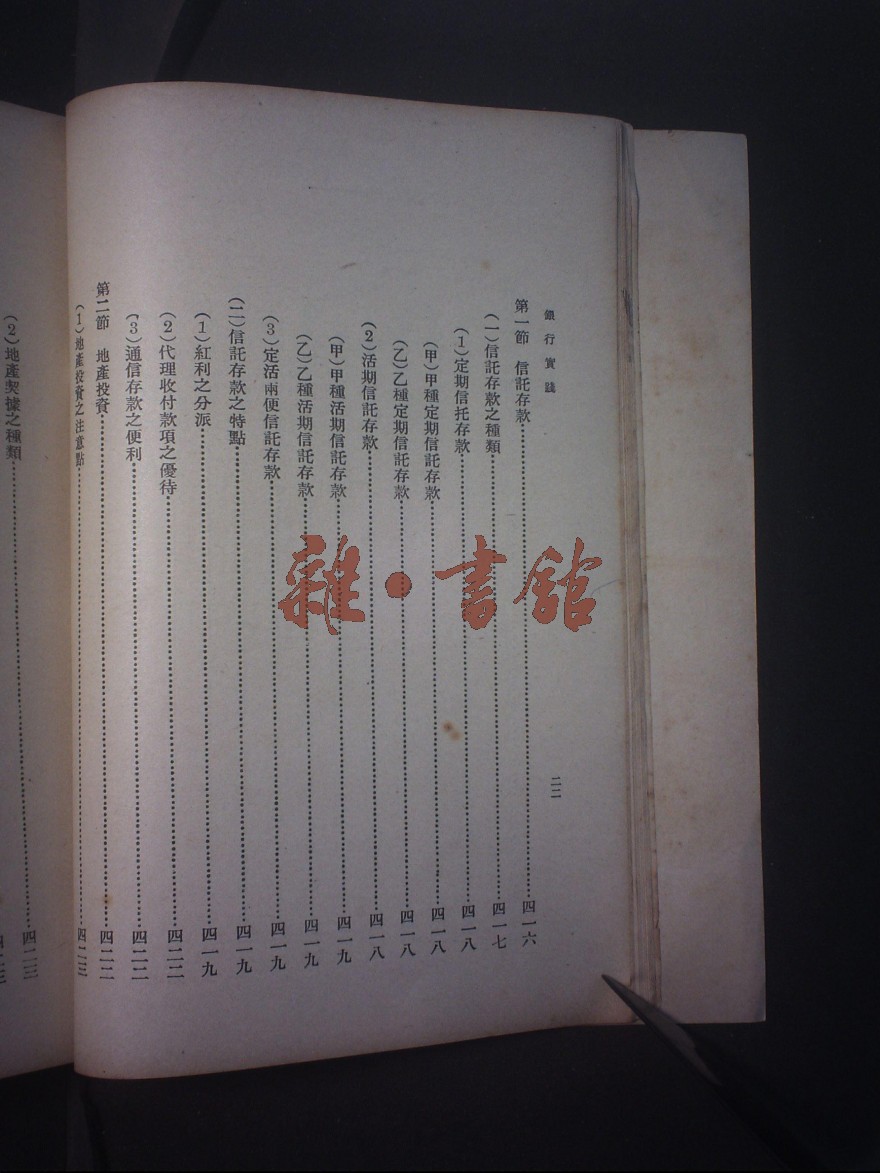 銀行實踐
二二
第一節 信託存款⋯⋯四一六
(一)信託存款之種類⋯⋯四一七
(1)定期信托存款⋯⋯四一八
(甲)甲種定期信託存款⋯⋯四一八
(乙)乙種定期信託存款⋯⋯四一八
(2)活期信託存款⋯⋯四一八
(甲)甲種活期信託存款⋯⋯四一九
(乙)乙種活期信託存款⋯⋯四一九
(3)定活兩便信託存款⋯⋯四一九
(二)信託存款之特點⋯⋯四一九
(1)紅利之分派⋯⋯四一九
(2)代理收付款項之優待⋯⋯四二二
(3)通信存款之便利⋯⋯四二二
第二節 地產投資⋯⋯四二二
(1)地產投資之注意點⋯⋯四二三
(2)地產契據之種類⋯⋯四二三
雜·書館